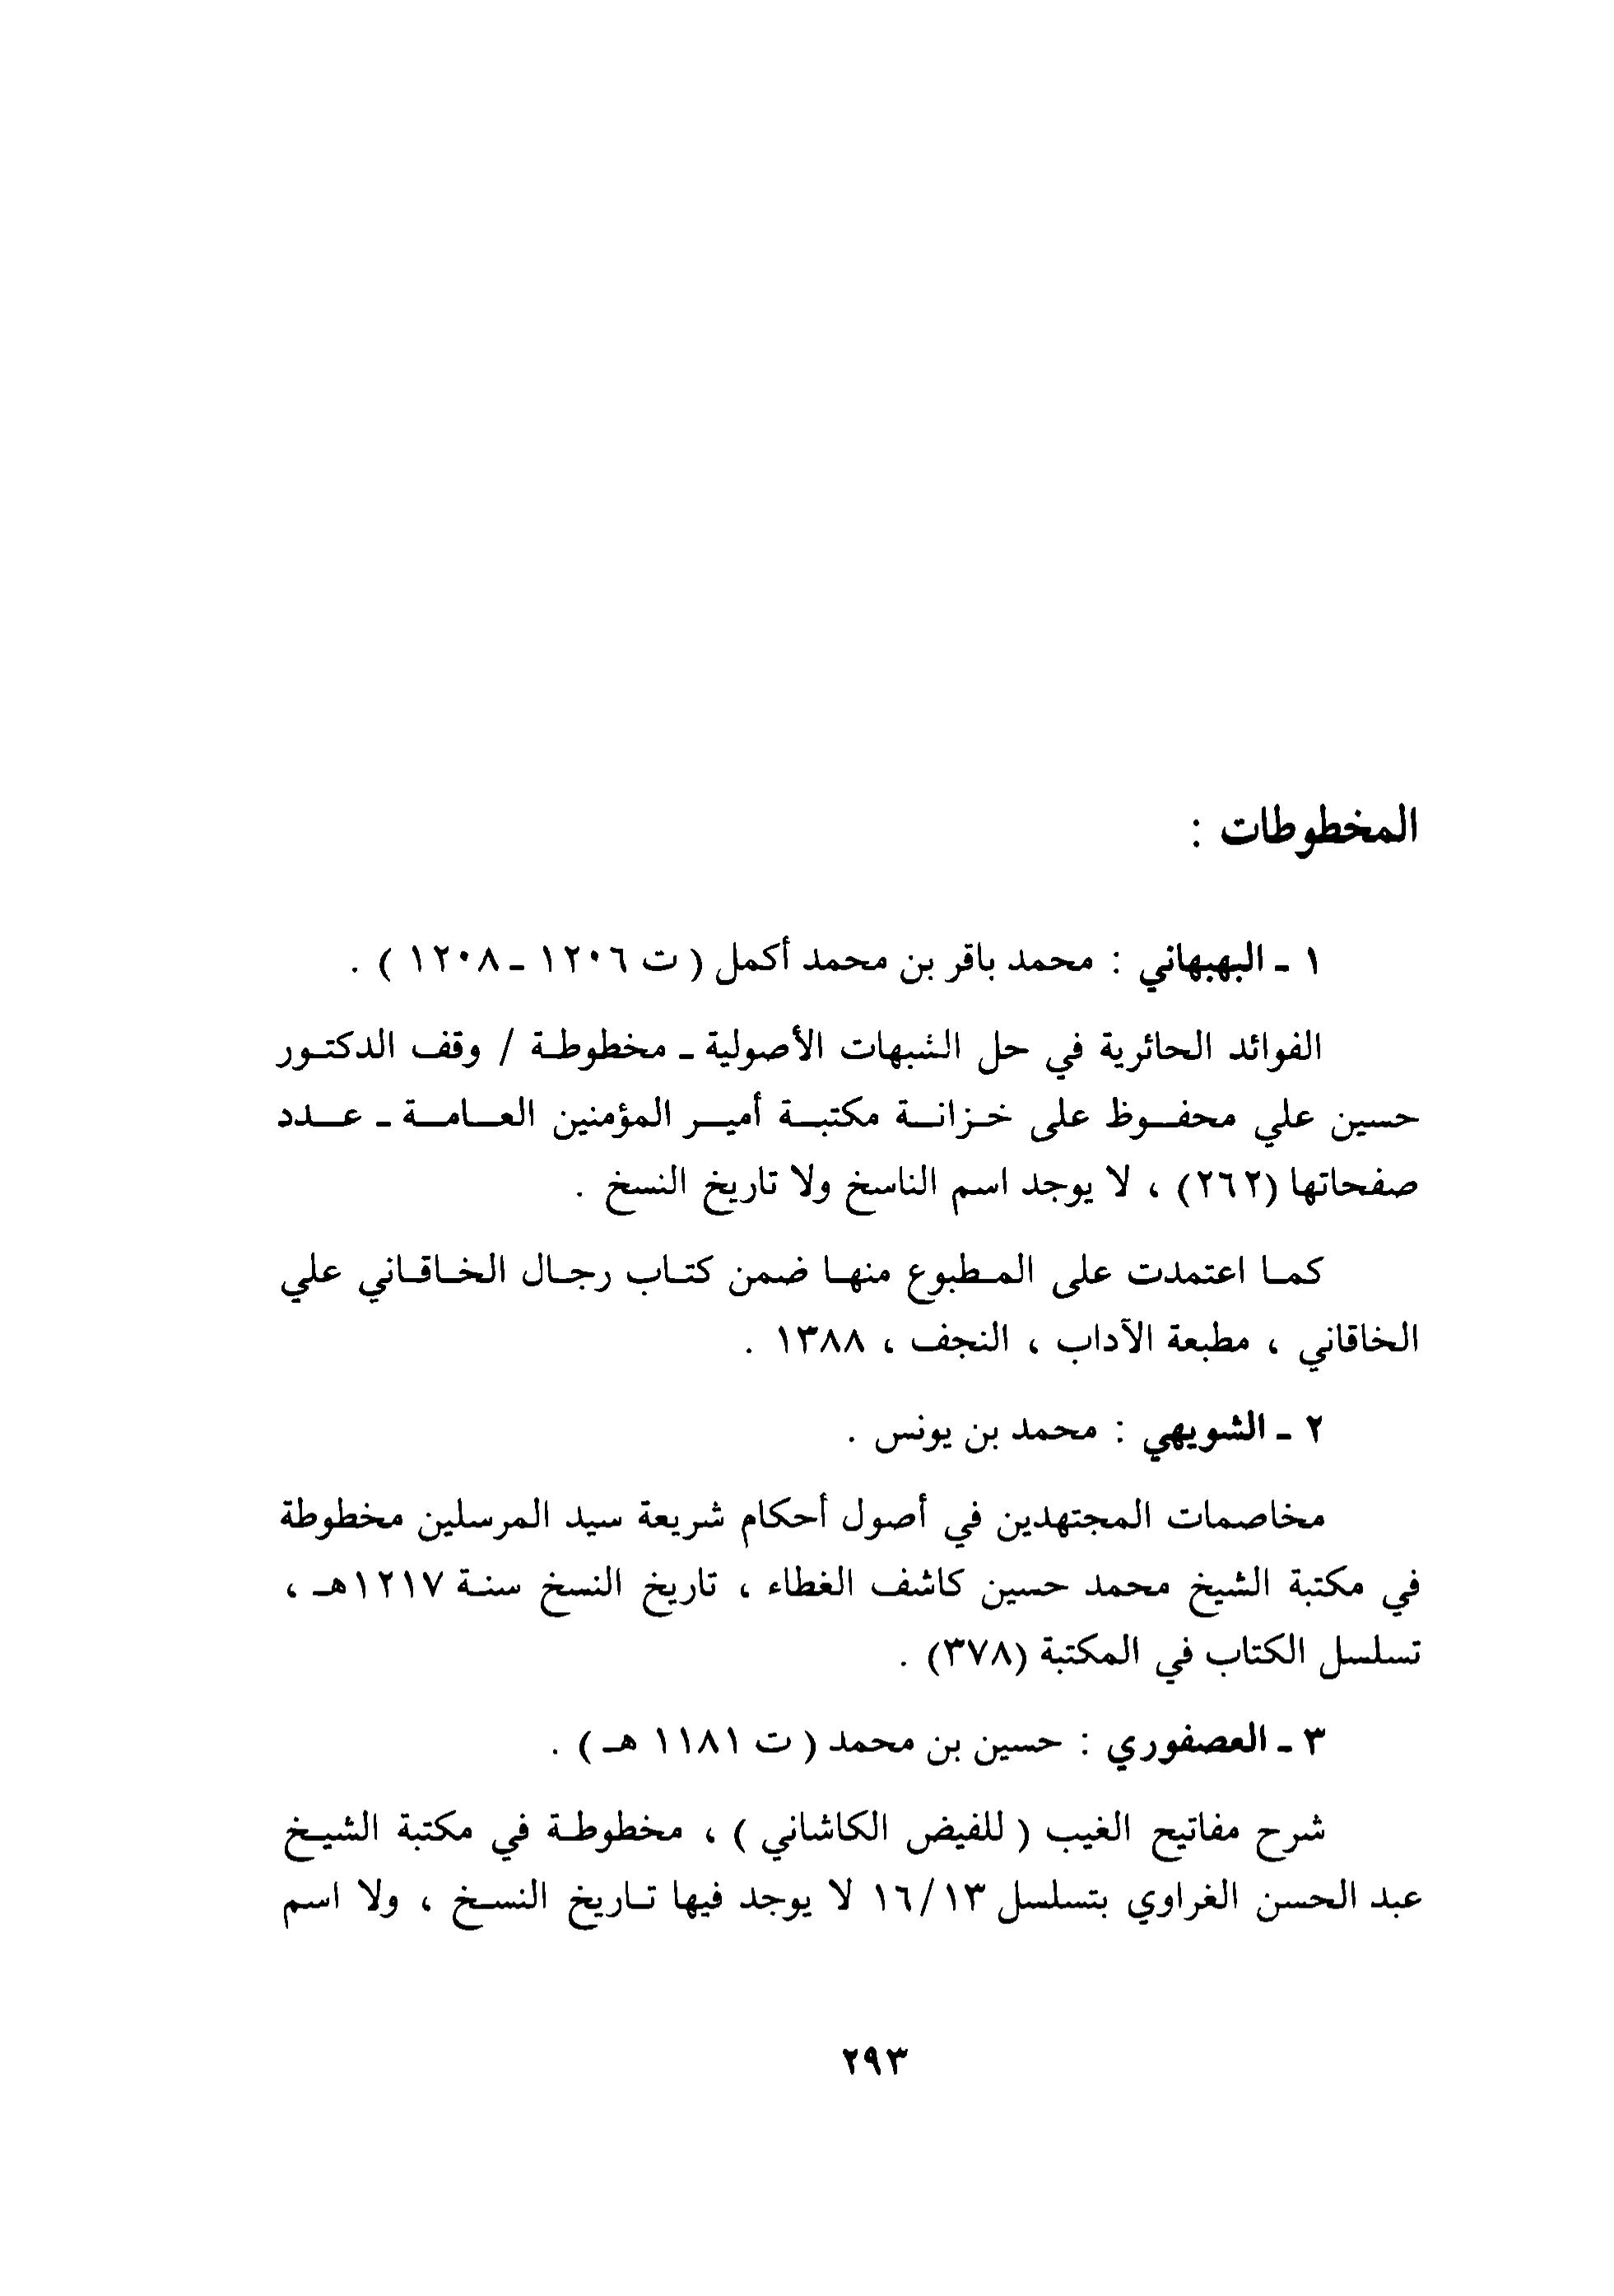 المخطوطات :
١ - البهبهاني : محمد باقر بن محمد أكمل ( ت ١٢٠٦ - ١٢٠٨ ) .
الفوائد الحائرية في حل الشبهات الأصولية - مخطوطة / وقف الدكتور
حسين علي محفوظ على خزانة مكتبة أمير المؤمنين العامة - عدد
صفحاتها (٢٦٢) ، لا يوجد اسم الناسخ ولا تاريخ النسخ .
كما اعتمدت على المطبوع منها ضمن كتاب رجال الخاقاني علي
الخاقاني ، مطبعة الآداب ، النجف ، ١٣٨٨ .
٢ - الشويهي : محمد بن يونس .
مخاصمات المجتهدين في أصول أحكام شريعة سيد المرسلين مخطوطة
في مكتبة الشيخ محمد حسين كاشف الغطاء ، تاريخ النسخ سنة ١٢١٧هـ ،
تسلسل الكتاب في المكتبة (٣٧٨) .
٣ - العصفوري : حسين بن محمد ( ت ١١٨١ هـ ) .
شرح مفاتيح الغيب ( للفيض الكاشاني ) ، مخطوطة في مكتبة الشيخ
عبد الحسن الغراوي بتسلسل ١٦/١٣ لا يوجد فيها تاريخ النسخ ، ولا اسم
٢٩٣